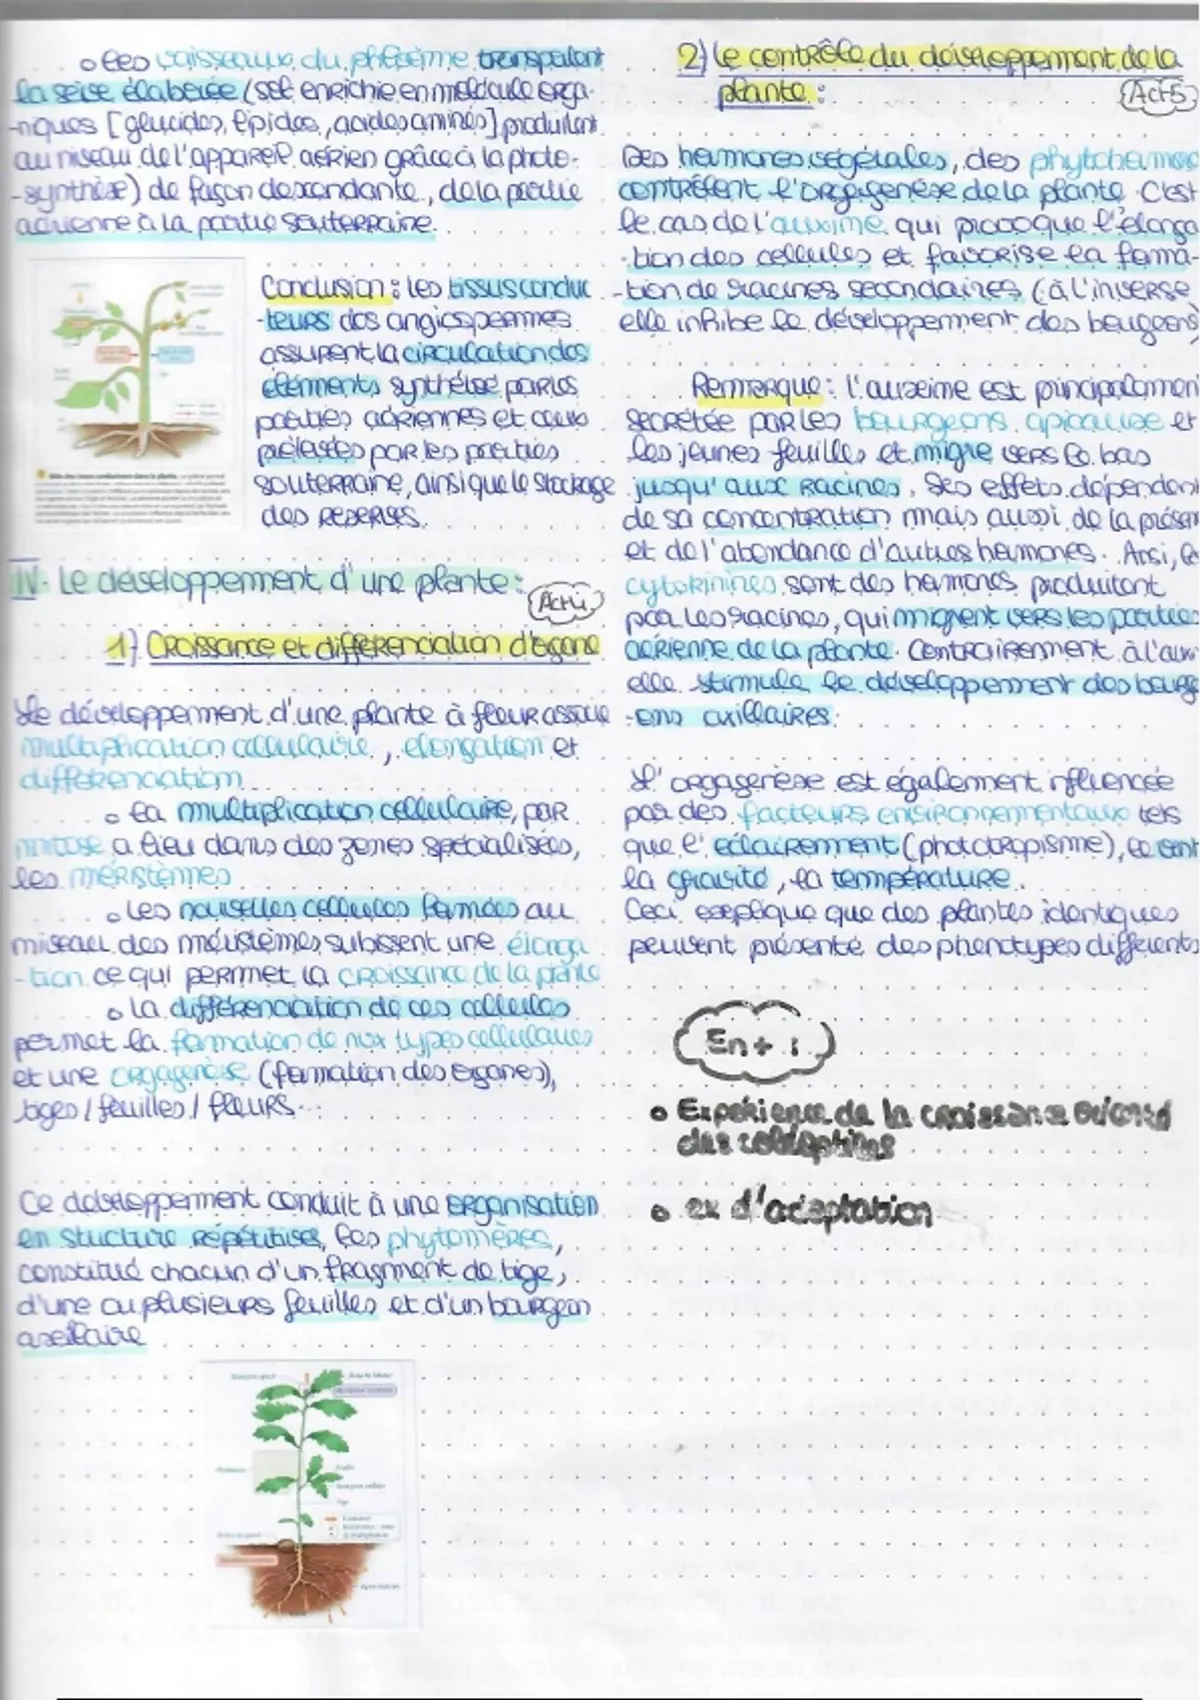 o Les vaisseaux du phloème transpolant
la seive élaborée (sèl enrichie en molécule orga-
-niques [glucides, lipides, acides aminés] produitent
au niveau de l'appareil aérien grâce à la photo-
-synthèse) de façon descendante, de la partie
aérienne à la partie souterraine.
Conclusion : les tissus conduc
-teurs des angiospermes
assurent la circulation des
éléments synthétisé par les
parties aériennes et ceux
prélevés par les parties
souterraine, ainsi que le stockage
des reserves.
IV- Le développement d'une plante :
Act4
1) Croissance et différenciation d'organe
Le développement d'une plante à fleur associe
multiplication cellulaire, élongation et
différenciation
o la multiplication cellulaire, par
mitose a lieu dans des zones spécialisées,
les méristèmes
o Les nouvelles cellules formées au
niveau des méristèmes subissent une élonga
-tion ce qui permet la croissance de la plante
o la différenciation de ces cellules
permet la formation de nvx types cellulaires
et une orgagenèse (formation des organes),
tiges / feuilles / fleurs...
Ce développement conduit à une organisation
en stucture répétitives, les phytomères,
constitué chacun d'un fragment de tige,
d'une ou plusieurs feuilles et d'un bourgeon
axillaire
2) Le contrôle du développement de la
plante :
Act5
Des hormones végétales, des phytohormo
contrôlent l'orgagenèse de la plante. C'est
le cas de l'auxine qui provoque l'élonga
-tion des cellules et favorise la forma-
-tion de racines secondaires (à l'inverse
elle inhibe le développement des bourgeons)
Remarque : l'auxine est principalement
secrétée par les bourgeons apicaux et
les jeunes feuilles et migre vers le bas
jusqu'aux racines. Ses effets dépendent
de sa concentration mais aussi de la présen
et de l'abondance d'autres hormones. Ansi, le
cytokinines sont des hormones produitent
par les racines, qui migrent vers les parties
aérienne de la plante. Contrairement à l'aux
elle stimule le développement des bourge
-ons axillaires.
L'orgagenèse est également influencée
par des facteurs environnementaux tels
que l'éclairement (phototropisme), le vent
la gravité, la température.
Ceci explique que des plantes identiques
peuvent présenté des phenotypes différents
En + :
o Expérience de la croissance orienté
des coléoptiles
o ex d'adaptation